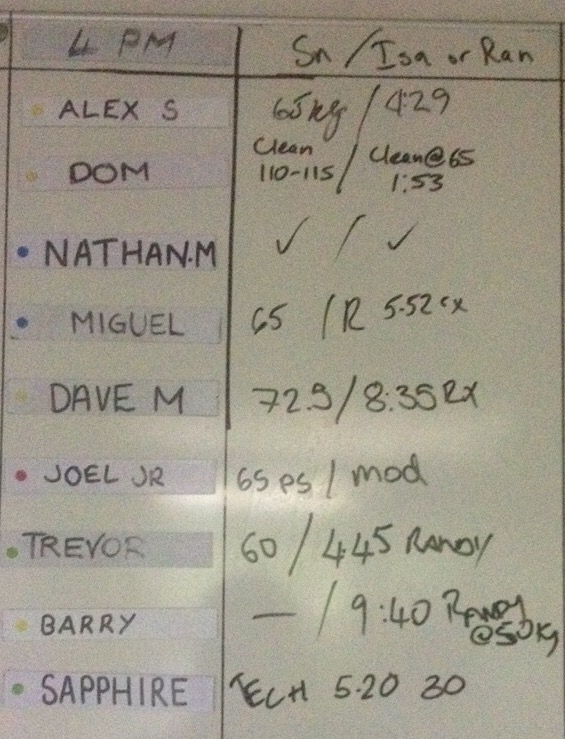 4 PM Sn / Isa or Ran
ALEX S 65kg / 4:29
DOM Clean 110-115 / Clean@65 1:53
NATHAN.M ✓ / ✓
MIGUEL 65 / R 5.52 rx
DAVE M 72.5 / 8:35 RX
JOEL JR 65 PS / mod
TREVOR 60 / 4.45 RANDY
BARRY — / 9:40 RANDY @50kg
SAPPHIRE TECH 5.20 30